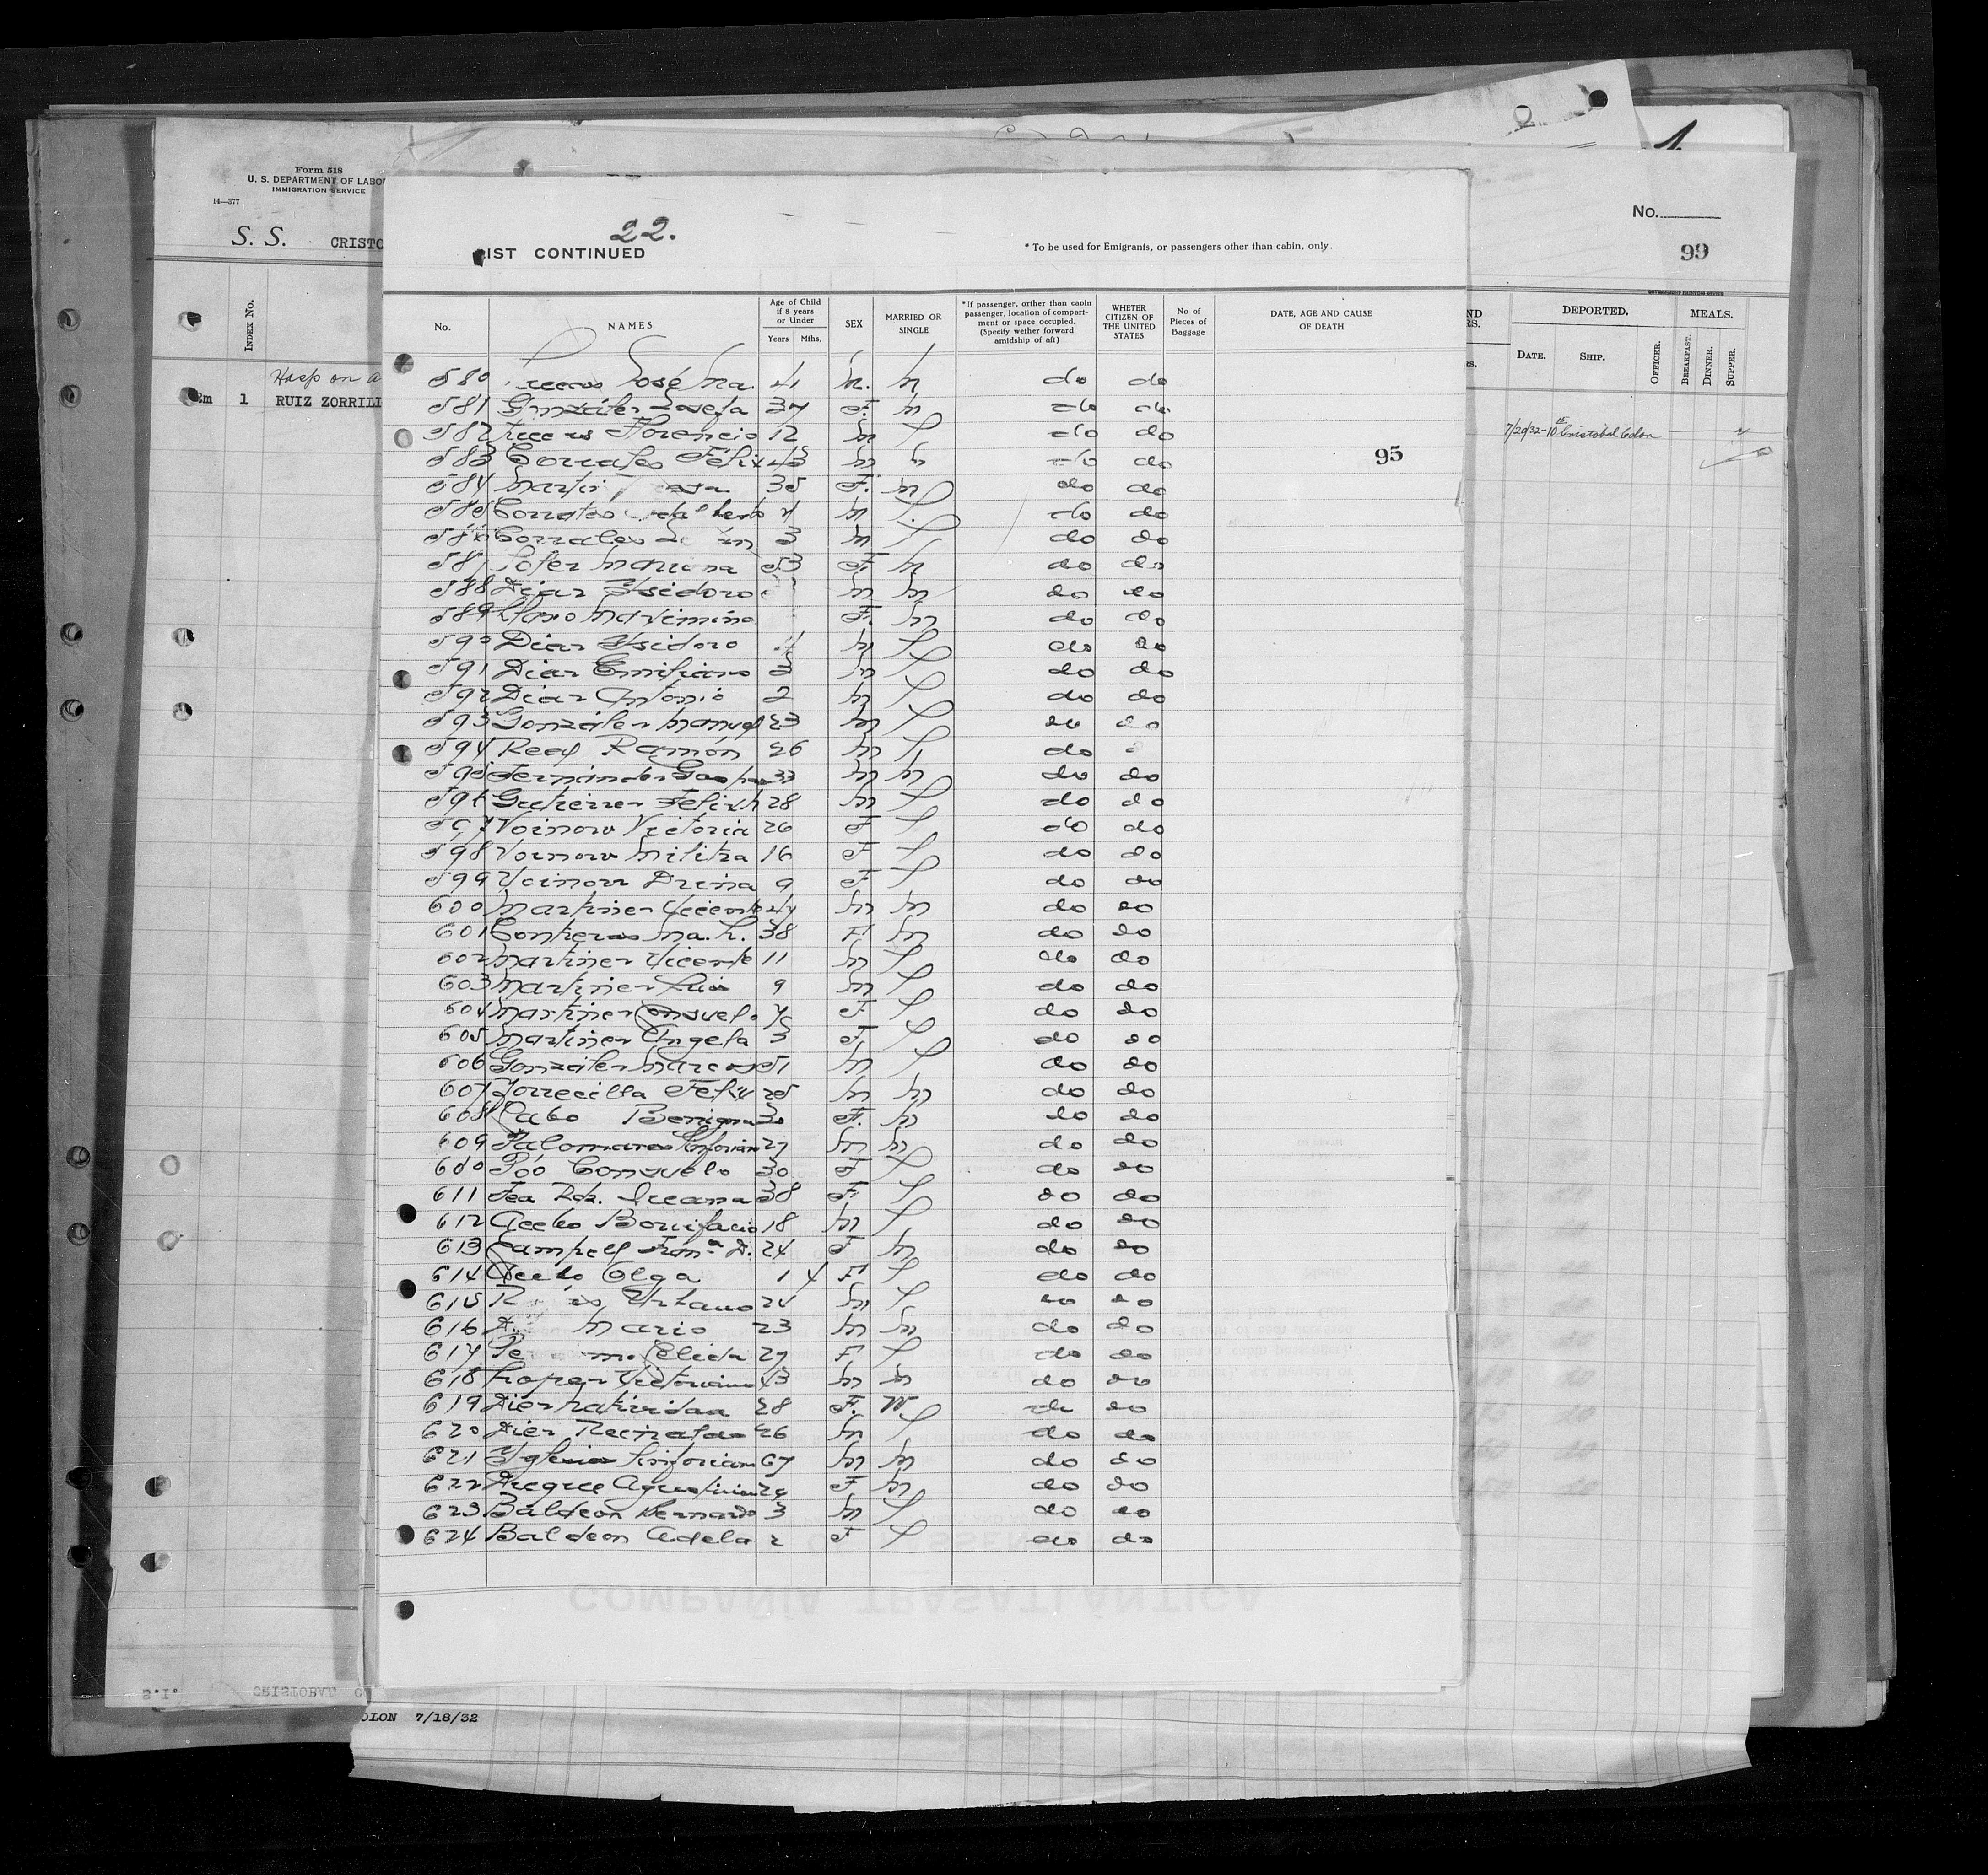 Form 518
U. S. DEPARTMENT OF LABO
IMMIGRATION SERVICE
14—377
S. S. CRISTO
INDEX No.
Hosp on a
Em 1 RUIZ ZORRILL
22.
IST CONTINUED
* To be used for Emigrants, or passengers other than cabin, only.
No. NAMES Age of Child if 8 years or Under Years Mths. SEX MARRIED OR SINGLE * If passenger, orther than cabin passenger, location of compartment or space occupied. (Specify wether forward amidship of aft) WHETER CITIZEN OF THE UNITED STATES No of Pieces of Baggage DATE, AGE AND CAUSE OF DEATH
580 José Ma. 41 m. m do do
581 González Josefa 37 F. m do do
582 Florencio 12 m S do do
583 Corrales Félix 43 m m do do
95
584 Martin 35 F. m do do
585 Corrales 4 m S. do do
586 Corrales 3 m S do do
587 Mariana 53 F m do do
588 Diaz Ysidoro m m do do
589 Llano Maximina F. m do do
590 Diaz Ysidoro 4 m S do do
591 Diaz Emiliano 3 m S do do
592 Diaz Antonio 2 m S do do
593 González Manuel 23 m S do do
594 Real Ramón 26 m S do
595 Fernández Gaspar 33 m m do do
596 Gutierrez 28 m S do do
597 Voinow Victoria 26 F S do do
598 Voinow Militza 16 F S do do
599 Voinow Drina 9 F S do do
600 Martinez Vicente 44 m m do do
601 Contreras Ma. L. 38 F. m do do
602 Martinez Vicente 11 m S do do
603 Martinez Luis 9 m S do do
604 Martinez Consuelo F S do do
605 Martinez Angela 3 F S do do
606 González Marcos 51 m S do do
607 Torrecilla Felix 25 m m do do
608 Cabo Benigna 30 F. m do do
609 Palomares Sinforiano 27 m m do do
600 Póo Consuelo 30 F S do do
611 Fea Rdz. 38 F. S do do
612 Acebo Bonifacio 18 m S do do
613 Campell Frana A. 24 F m do do
614 Acebo Olga 1 4 F S do do
615 Urbano 24 m S do do
616 Mario 23 m m do do
617 Celida 27 F S do do
618 Lopez Victoriano 43 m m do do
619 Diez Natividad 28 F. W do do
620 Diez Recinaldo 26 m S do do
621 Yglesias Sinforiano 67 m m do do
622 F m do do
623 Baldeon Bernardo 3 m S do do
624 Baldeon Adela 2 F S do do
COMPAÑÍA TRASATLANTICA
1
No.
99
ND RS. DEPORTED. MEALS.
RS. DATE. SHIP. OFFICER. BREAKFAST. DINNER. SUPPER.
7/20/32-10 Cristobal Colon
S.I. CRISTOBAL C
OLON 7/18/32